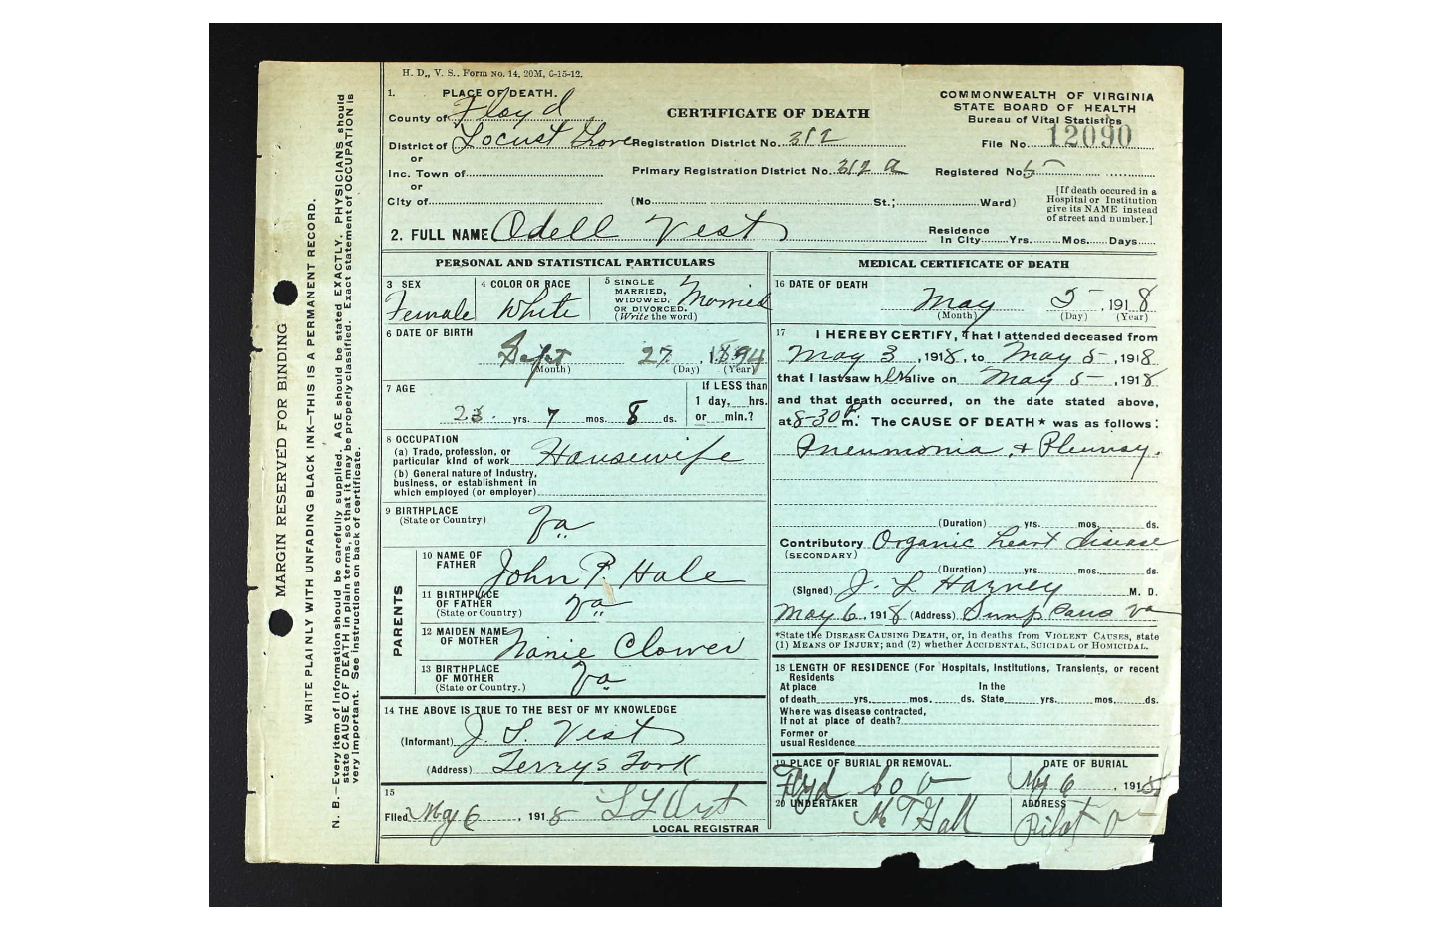 H. D., V. S., Form No. 14, 20M, 6-15-12.
1. PLACE OF DEATH.
County of Floyd
District of Locust Grove
or
Inc. Town of
or
City of
CERTIFICATE OF DEATH
Registration District No. 312
Primary Registration District No. 312 a
(No. St.; Ward)
COMMONWEALTH OF VIRGINIA
STATE BOARD OF HEALTH
Bureau of Vital Statistics
File No. 12090
Registered No. 5
[If death occured in a
Hospital or Institution
give its NAME instead
of street and number.]
2. FULL NAME Odell Vest
Residence
In City Yrs. Mos. Days
PERSONAL AND STATISTICAL PARTICULARS
3 SEX
Female
4 COLOR OR RACE
White
5 SINGLE
MARRIED,
WIDOWED,
OR DIVORCED.
(Write the word)
Married
6 DATE OF BIRTH
Sept 27, 1894
(Month) (Day) (Year)
7 AGE
23 yrs. 7 mos. 8 ds.
If LESS than
1 day, hrs.
or min.?
8 OCCUPATION
(a) Trade, profession, or
particular kind of work Housewife
(b) General nature of Industry,
business, or establishment in
which employed (or employer)
9 BIRTHPLACE
(State or Country) Va
PARENTS
10 NAME OF
FATHER John P. Hale
11 BIRTHPLACE
OF FATHER
(State or Country) Va
12 MAIDEN NAME
OF MOTHER Nanie Clower
13 BIRTHPLACE
OF MOTHER
(State or Country.) Va
14 THE ABOVE IS TRUE TO THE BEST OF MY KNOWLEDGE
(Informant) J. S. Vest
(Address) Terrys Fork
15
Filed May 6, 1918
LOCAL REGISTRAR
MEDICAL CERTIFICATE OF DEATH
16 DATE OF DEATH
May 5, 1918
(Month) (Day) (Year)
17 I HEREBY CERTIFY, That I attended deceased from
May 3, 1918, to May 5, 1918
that I last saw her alive on May 5, 1918
and that death occurred, on the date stated above,
at 8-30 P m. The CAUSE OF DEATH* was as follows:
Pneumonia & Pleurisy.
(Duration) yrs. mos. ds.
Contributory Organic heart disease
(SECONDARY)
(Duration) yrs. mos. ds.
(Signed) J. L. Harvey M. D.
May 6, 1918 (Address) Simpsons Va
*State the DISEASE CAUSING DEATH, or, in deaths from VIOLENT CAUSES, state
(1) MEANS OF INJURY; and (2) whether ACCIDENTAL, SUICIDAL or HOMICIDAL.
18 LENGTH OF RESIDENCE (For Hospitals, Institutions, Transients, or recent
Residents
At place In the
of death yrs. mos. ds. State yrs. mos. ds.
Where was disease contracted,
If not at place of death?
Former or
usual Residence
19 PLACE OF BURIAL OR REMOVAL.
Floyd Co V
DATE OF BURIAL
May 6, 1918
20 UNDERTAKER
ADDRESS
Pilot V
MARGIN RESERVED FOR BINDING
WRITE PLAINLY WITH UNFADING BLACK INK—THIS IS A PERMANENT RECORD.
N. B.—Every item of Information should be carefully supplied. AGE should be stated EXACTLY. PHYSICIANS should
state CAUSE OF DEATH in plain terms, so that it may be properly classified. Exact statement of OCCUPATION is
very important. See instructions on back of certificate.